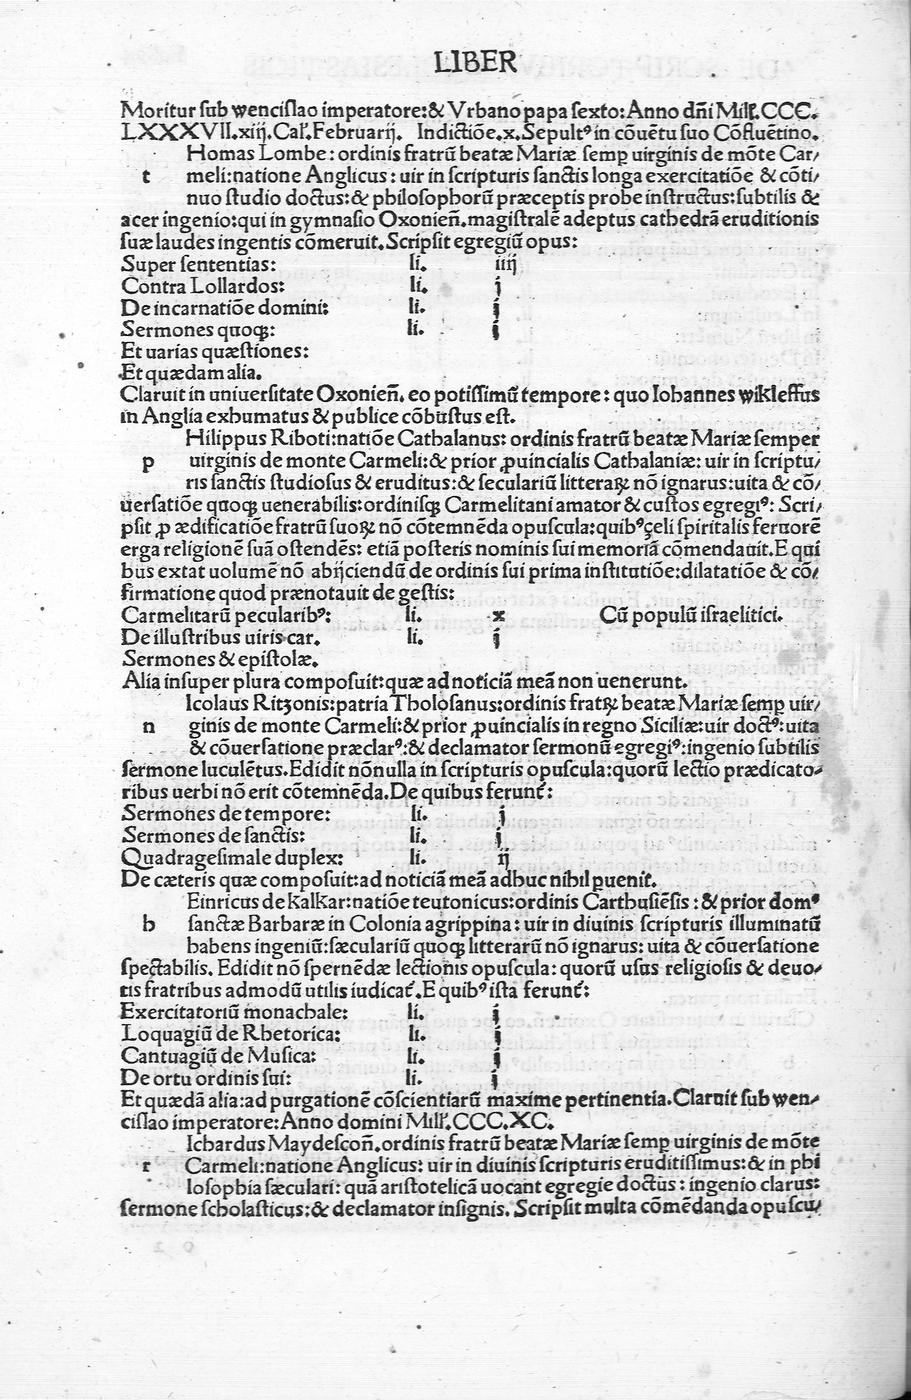 LIBER
Moritur ſub wenciſlao imperatore:& Vrbano papa ſexto:Anno dñi Milł.CCC.
LXXXVII.xiiȷ.Cal'.Februarij. Indictiõe.x.Sepultꝰ in cõuẽtu ſuo Cõfluẽtino.
Homas Lombe: ordinis fratrũ beatæ Mariæ ſemp uirginis de mõte Car/
t meli:natione Anglicus: uir in ſcripturis ſanctis longa exercitatiõe & cõti/
nuo ſtudio doctus:& philoſophorũ præceptis probe inſtructus:ſubtilis &
acer ingenio:qui in gymnaſio Oxonieñ.magiſtralẽ adeptus cathedrã eruditionis
ſuæ laudes ingentis cõmeruit.Scripſit egregiũ opus:
Super ſententias: li. iiij
Contra Lollardos: li. j
De incarnatiõe domini: li. j
Sermones quoqꝫ: li. j
Et uarias quæſtiones:
Et quædam alia.
Claruit in uniuerſitate Oxonieñ. eo potiſſimũ tempore: quo Iohannes wikleffus
in Anglia exhumatus & publice cõbuſtus eſt.
Hilippus Riboti:natiõe Cathalanus: ordinis fratrũ beatæ Mariæ ſemper
p uirginis de monte Carmeli:& prior ꝓuincialis Cathalaniæ: uir in ſcriptu/
ris ſanctis ſtudioſus & eruditus:& ſeculariũ litteraꝝ nõ ignarus:uita & cõ/
uerſatiõe quoqꝫ uenerabilis:ordiniſqꝫ Carmelitani amator & cuſtos egregiꝰ: Scri/
pſit ꝓ ædificatiõe fratrũ ſuoꝝ nõ cõtemnẽda opuſcula:quibꝰ çeli ſpiritalis feruorẽ
erga religionẽ ſuã oſtendẽs: etiã poſteris nominis ſui memoriã cõmendauit.E qui
bus extat uolumẽ nõ abijciendũ de ordinis ſui prima inſtitutiõe:dilatatiõe & cõ/
firmatione quod prænotauit de geſtis:
Carmelitarũ pecularibꝰ: li. x Cũ populũ iſraelitici.
De illuſtribus uiris car. li. j
Sermones & epiſtolæ.
Alia inſuper plura compoſuit:quæ ad noticiã meã non uenerunt.
Icolaus Ritzonis:patria Tholoſanus:ordinis fratꝝ beatæ Mariæ ſemp uir/
n ginis de monte Carmeli:& prior ꝓuincialis in regno Siciliæ:uir doctꝰ:uita
& cõuerſatione præclarꝰ:& declamator ſermonũ egregiꝰ:ingenio ſubtilis
ſermone luculẽtus.Edidit nõnulla in ſcripturis opuſcula:quorũ lectio prædicato/
ribus uerbi nõ erit cõtemnẽda.De quibus ferunt':
Sermones de tempore: li. j
Sermones de ſanctis: li. j
Quadrageſimale duplex: li. ij
De cæteris quæ compoſuit:ad noticiã meã adhuc nihil puenit.
Einricus de kalkar:natiõe teutonicus:ordinis Carthuſiẽſis: & prior domꝰ
h ſanctæ Barbaræ in Colonia agrippina: uir in diuinis ſcripturis illuminatũ
habens ingeniũ:ſæculariũ quoqꝫ litterarũ nõ ignarus: uita & cõuerſatione
ſpectabilis. Edidit nõ ſpernẽdæ lectionis opuſcula: quorũ uſus religioſis & deuo/
tis fratribus admodũ utilis iudicat'.E quibꝰ iſta ferunt':
Exercitatoriũ monachale: li. j
Loquagiũ de Rhetorica: li. j
Cantuagiũ de Muſica: li. j
De ortu ordinis ſui: li. j
Et quædã alia:ad purgationẽ cõſcientiarũ maxime pertinentia.Claruit ſub wen/
ciſlao imperatore:Anno domini Milł.CCC.XC.
Ichardus Maydeſcoñ.ordinis fratrũ beatæ Mariæ ſemp uirginis de mõte
r Carmeli:natione Anglicus: uir in diuinis ſcripturis eruditiſſimus:& in phi
loſophia ſæculari: quã ariſtotelicã uocant egregie doctus: ingenio clarus:
ſermone ſcholaſticus:& declamator inſignis. Scripſit multa cõmẽdanda opuſcu/